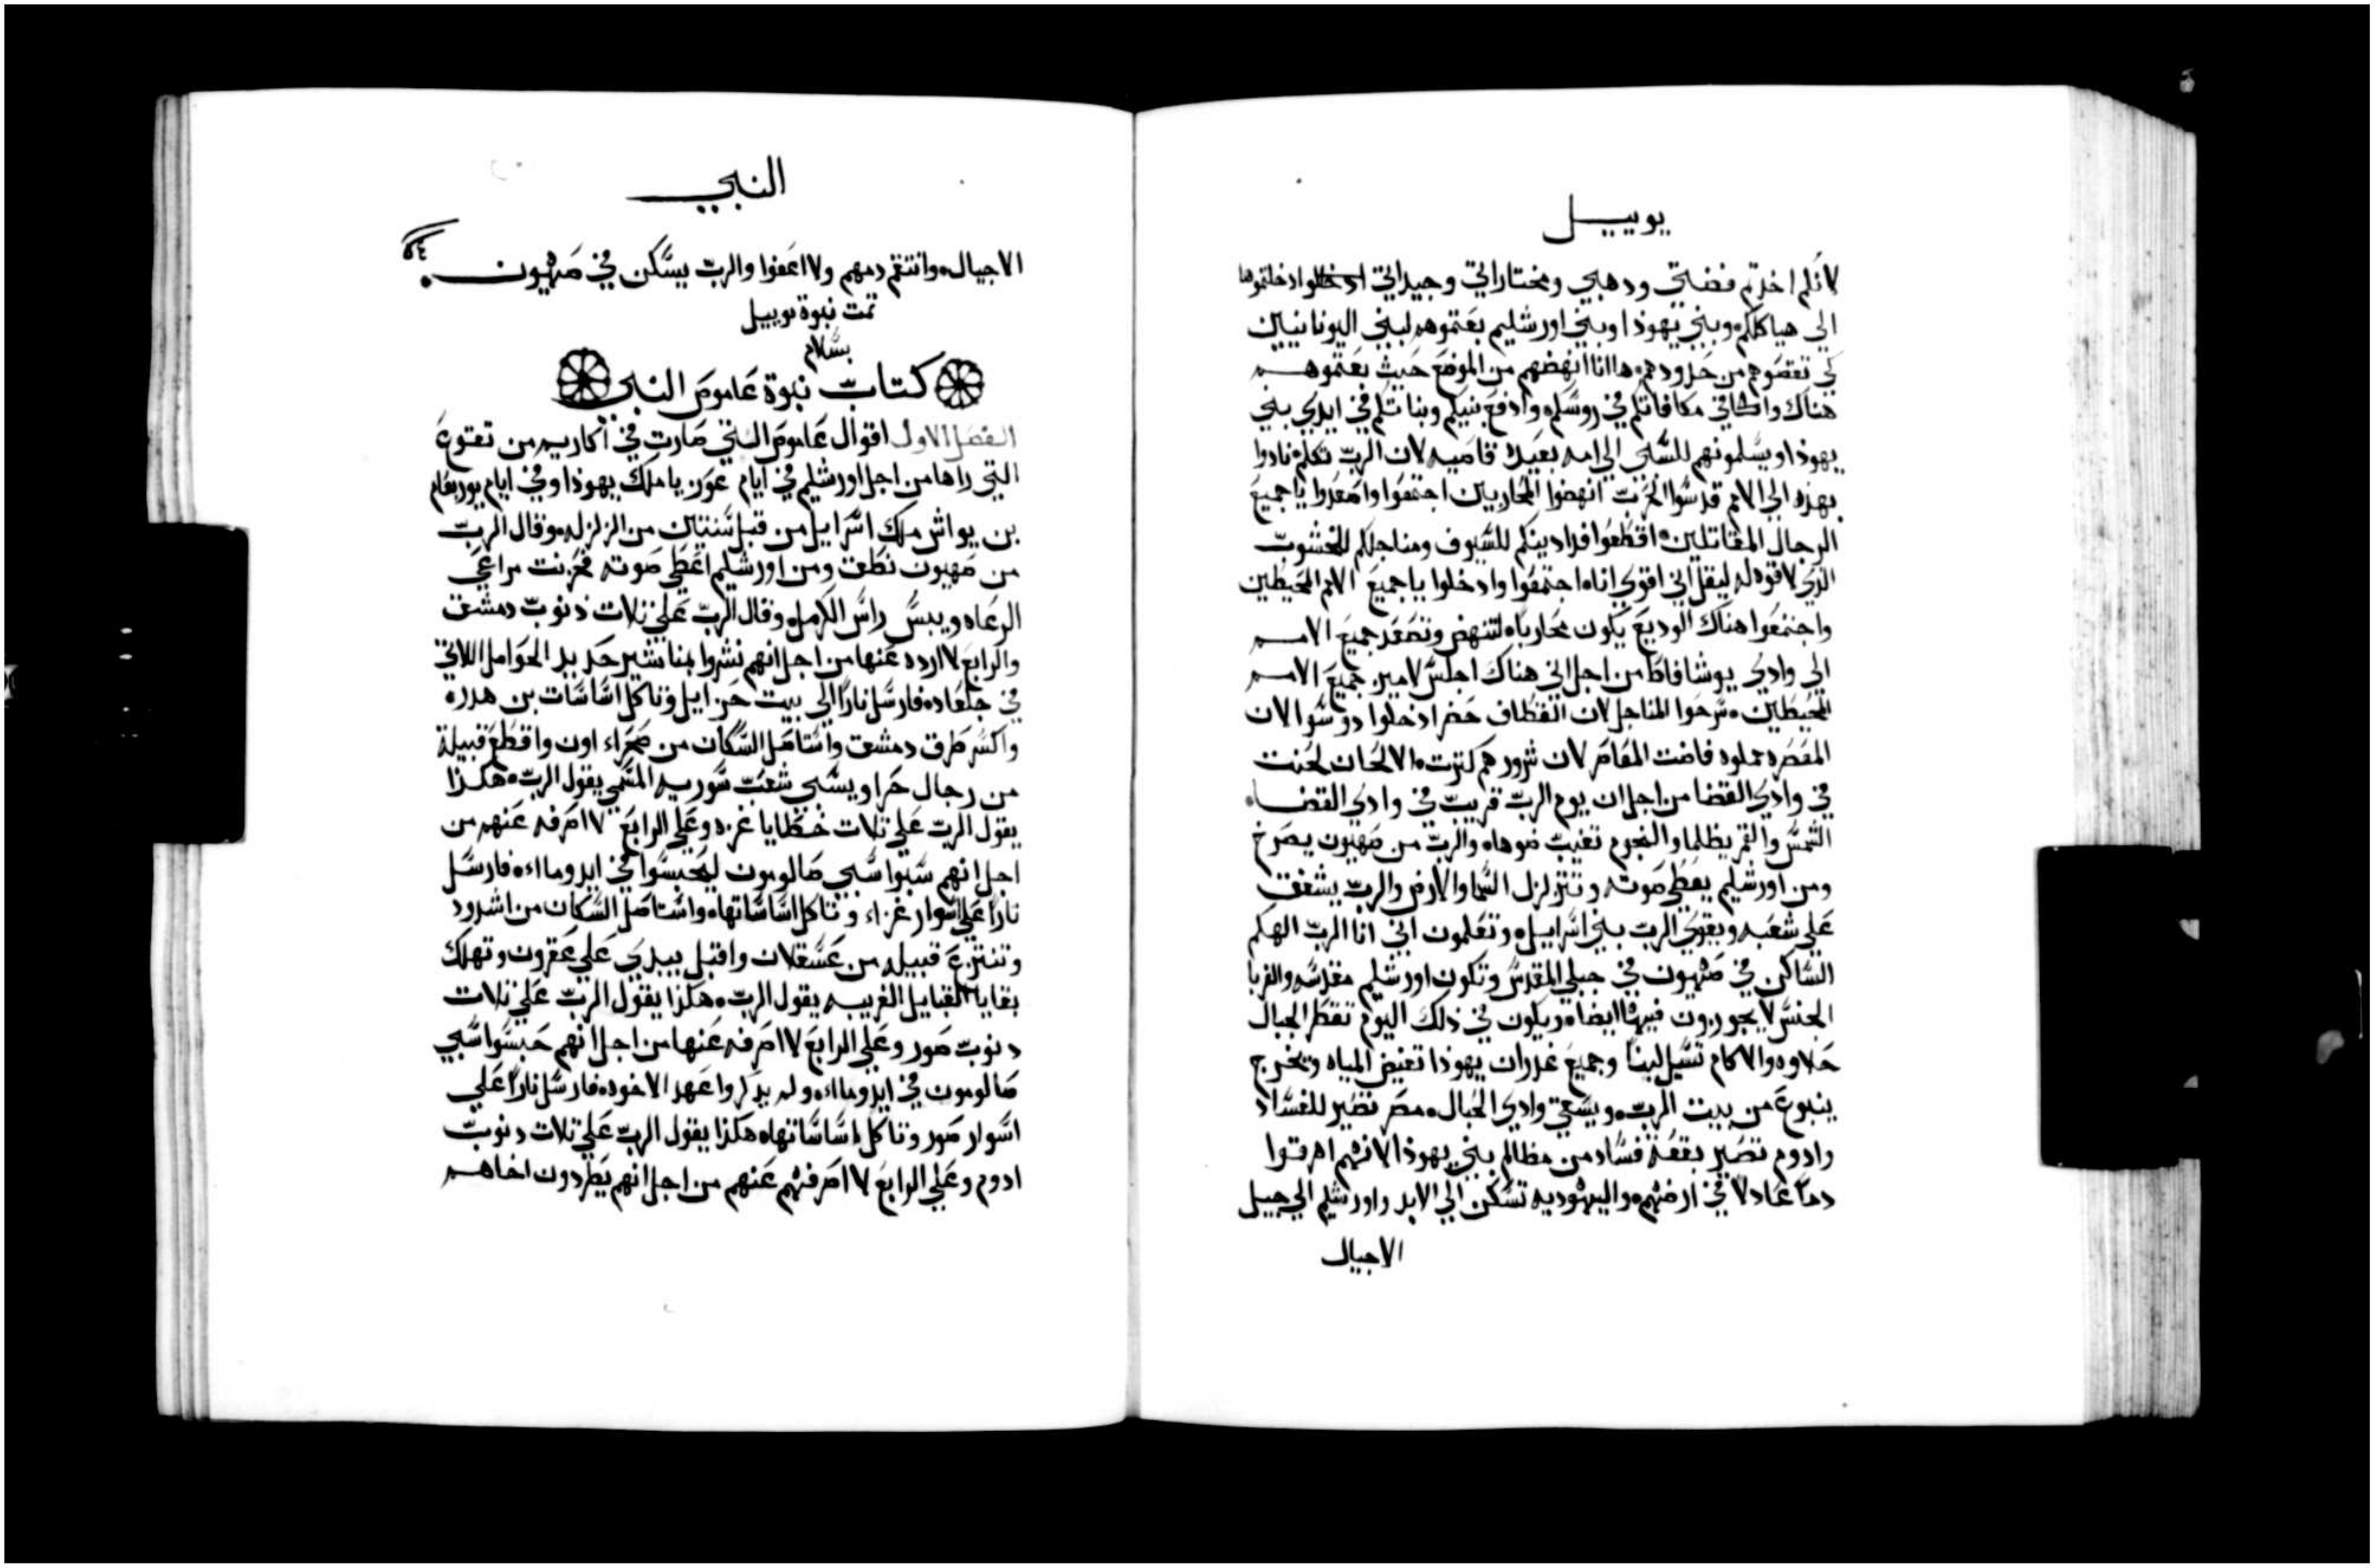 يوييل
لانكم اخدتم فضتي ودهبي ومختاراتي وجيداتي ادخلتموها
الي هياكلكم وبني يهوذا وبني اورشليم بعتموهم لبني اليونانيين
لكي تقصوهم من حدودهم هاانا انهضهم من الموضع حيث بعتموهم
هناك واكافي مكافاتكم في روسكم وادفع بنيكم وبناتكم في ايدي بني
يهوذا ويسلمونهم للسبي الي امه بعيده قاصيه لان الرب تكلم نادوا
بهذه الي الامم قدسوا الحرب انهضوا المحاربين اجتمعوا واصعدوا ياجميع
الرجال المقاتلين اقطعوا فدادينكم للسيوف ومناجلكم للخشوب
الذي لاقوه له ليقل اني اقوي انا اجتمعوا وادخلوا ياجميع الامم المحيطين
واجتمعوا هناك الوديع يكون محاربا لتنهض وتصعد جميع الامم
الي وادي يوشافاط من اجل اني هناك اجلس لامير جميع الامم
المحيطين سرحوا المناجل لان القطاف حضر ادخلوا دوسوا لان
المعصره مملوه فاضت المعاصر لان شرورهم كثرت الالحان لحنت
في وادي القضا من اجل ان يوم الرب قريب في وادي القضا
الشمس والقمر يظلما والنجوم تغيب ضوها والرب من صهيون يصرخ
ومن اورشليم يعطي صوته وتتزلزل السما والارض والرب يشفق
علي شعبه ويقوي الرب بني اسراييل وتعلمون اني انا الرب الهكم
الساكن في صهيون في جبلي المقدس وتكون اورشليم مقدسه والغربا
الجنس لايجوزون فيها ايضا ويكون في ذلك اليوم تقطر الجبال
حلاوه والاكام تسيل لبنا وجميع غدران يهوذا تفيض المياه وتخرج
ينبوع من بيت الرب ويسقي وادي الحبال مصر تصير للفساد
وادوم تصير بقعة فساد من مظالم بني يهوذا لانهم اهرقوا
دما عادلا في ارضهم واليهوديه تسكن الي الابد واورشليم الي جيل
الاجيال
النبي
الاجيال وانتقم دمهم ولا اعفوا والرب يسكن في صهيون
تمت نبوة يوييل
بسلام
كتاب نبوة عاموص النبي
الفصل الاول اقوال عاموص التي صارت في اكاريم من تقوع
التي راها من اجل اورشليم في ايام عوزيا ملك يهوذا وفي ايام يوربعام
بن يواش ملك اسراييل من قبل سنتين من الزلزله وقال الرب
من صهيون نطق ومن اورشليم اعطي صوته فحزنت مراعي
الرعاه ويبس راس الكرمل وقال الرب علي تلات ذنوب دمشق
والرابع لا ارده عنها من اجل انهم نشروا بمناشير حديد الحوامل اللاتي
في جلعاد فارسل نارا الي بيت حزاييل وتاكل اساسات بن هدر
واكسر طرق دمشق واستاصل السكان من صحراء اون واقطع قبيلة
من رجال حرا ويسبي شعب سوريه المسمي يقول الرب هكذا
يقول الرب علي تلات خطايا غزه وعلي الرابع لا اصرفه عنهم من
اجل انهم سبوا سبي صالومون ليحبسوا في ايدوماا فارسل
نارا علي اسوار غزاء وتاكل اساساتها واستاصل السكان من اشدود
وتنتزع قبيله من عسقلان واقبل بيدي علي عقرون وتهلك
بقايا القبايل الغريبه يقول الرب هكذا يقول الرب علي تلات
دنوب صور وعلي الرابع لا اصرفه عنها من اجل انهم حبسوا سبي
صالومون في ايدوماا ولم يدكروا عهد الاخوه فارسل نارا علي
اسوار صور وتاكل اساساتها هكذا يقول الرب علي تلات دنوب
ادوم وعلي الرابع لا اصرفهم عنهم من اجل انهم يطردون اخاهم